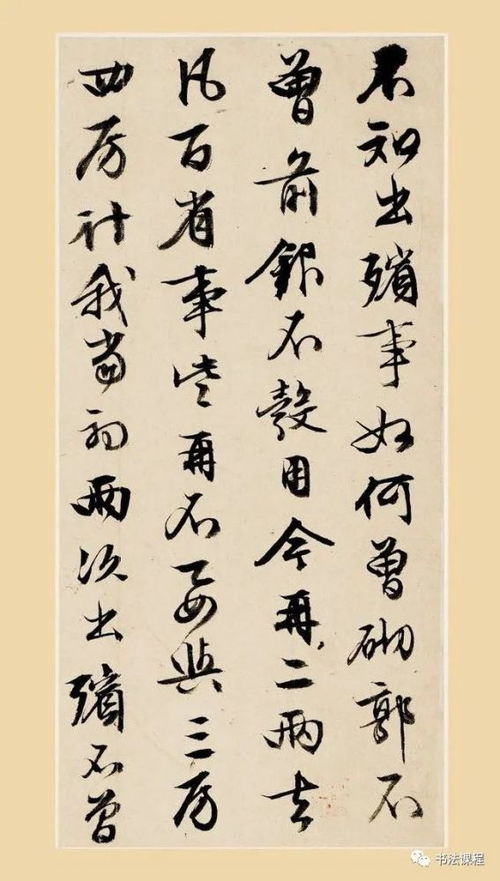 不知出殯事如何曾砌郭不
曾前銀不彀用今再二兩去
凡百省事些再不要與三房
四房計我當初兩次出殯不曾
书法课程